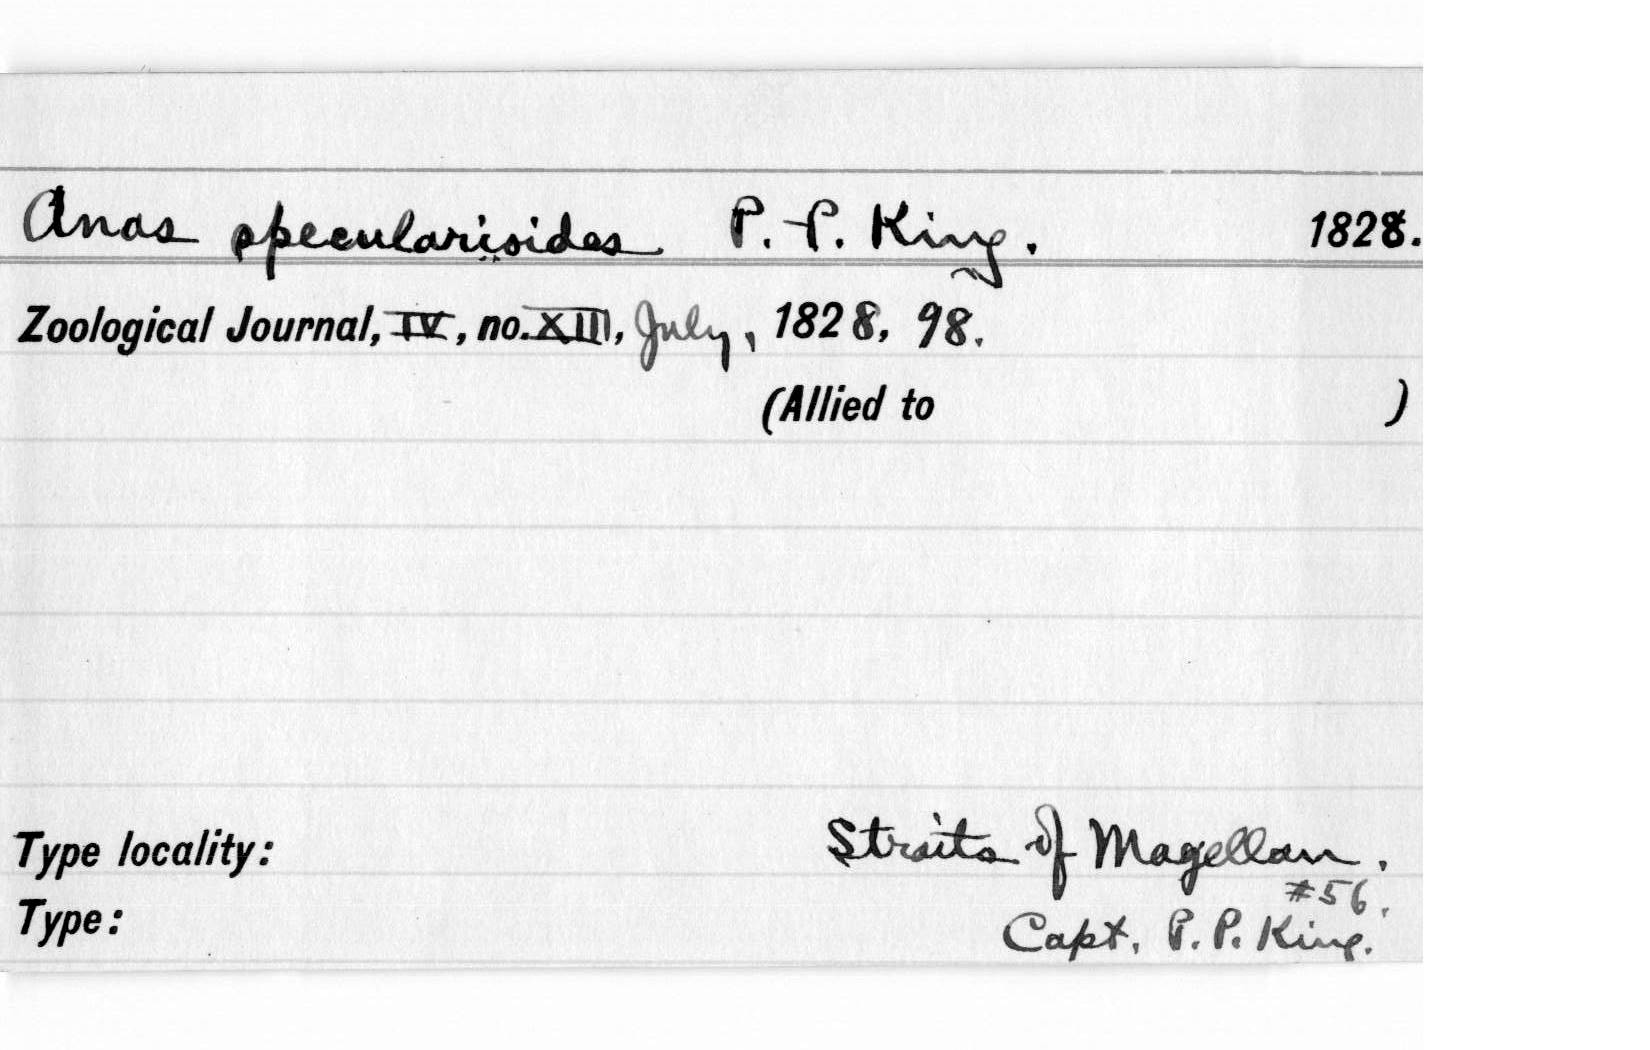 Anas specularisides P. P. King. 1828.
Zoological Journal, IV, no. XIII, July, 1828, 98.
(Allied to )
Type locality: Straits of Magellan.
#56.
Type: Capt. P. P. King.